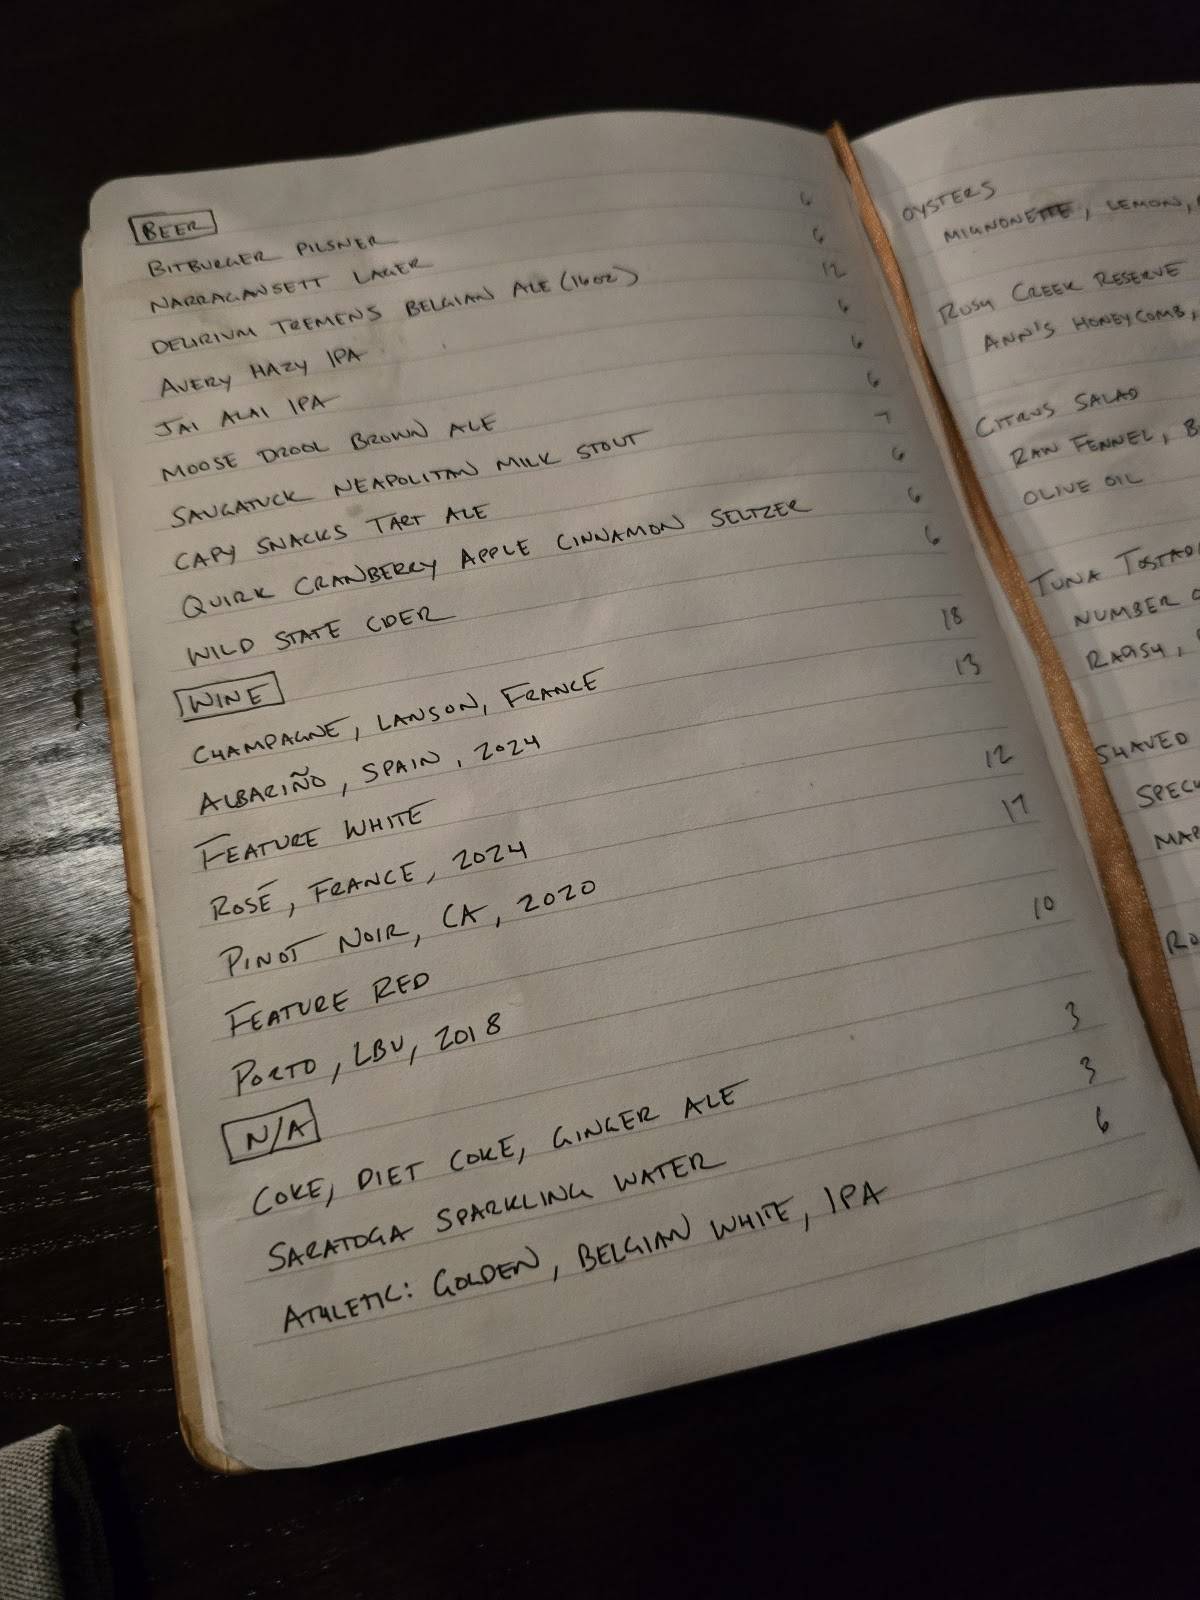 BEER
BITBURGER PILSNER 6
NARRAGANSETT LAGER 6
DELIRIUM TREMENS BELGIAN ALE (16oz) 12
AVERY HAZY IPA 6
JAI ALAI IPA 6
MOOSE DROOL BROWN ALE 6
SAUGATUCK NEAPOLITAN MILK STOUT 7
CAPY SNACKS TART ALE 6
QUIRK CRANBERRY APPLE CINNAMON SELTZER 6
WILD STATE CIDER 6
WINE
CHAMPAGNE, LANSON, FRANCE 18
ALBARIÑO, SPAIN, 2024 13
FEATURE WHITE
ROSÉ, FRANCE, 2024 12
PINOT NOIR, CA, 2020 17
FEATURE RED
PORTO, LBV, 2018 10
N/A
COKE, DIET COKE, GINGER ALE 3
SARATOGA SPARKLING WATER 3
ATHLETIC: GOLDEN, BELGIAN WHITE, IPA 6
OYSTERS
MIGNONETTE, LEMON,
ROSY CREEK RESERVE
ANN'S HONEYCOMB,
CITRUS SALAD
RAW FENNEL,
OLIVE OIL
TUNA
NUMBER
RADISH,
SHAVED